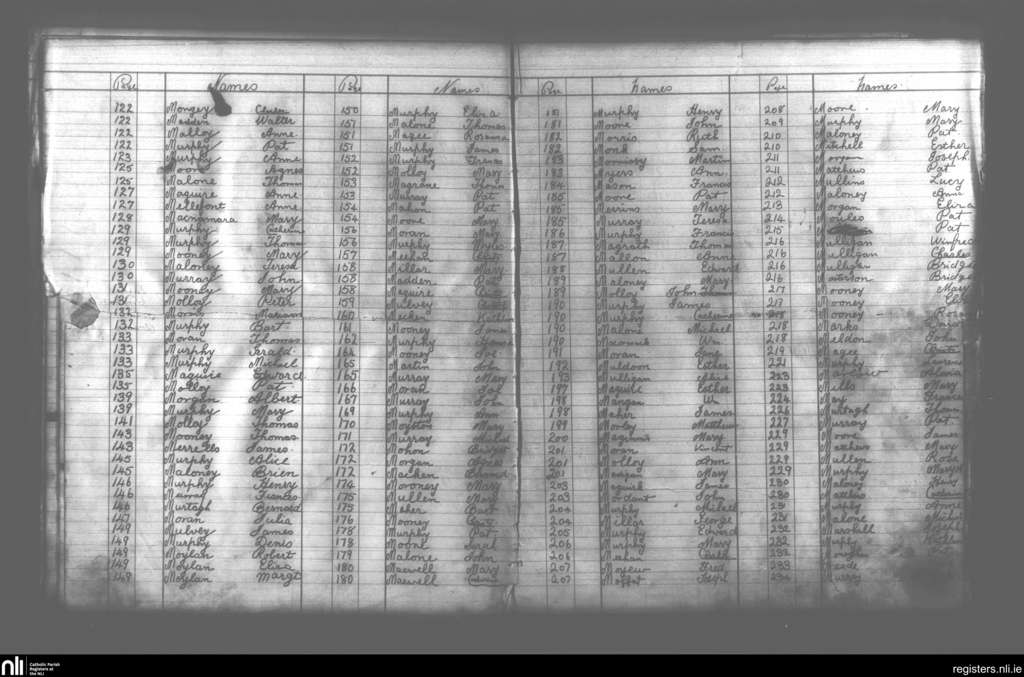 Page Names Page Names
122 Mongey
122 Walter
122 Malloy Anne
122 Murphy Pat
123 Murphy Anne
125 Moore Agnes
125 Malone Thomas
127 Maguire Anne
127 Mellefont Anne
128 Macnamara Mary
129 Murphy Catherine
129 Murphy Thomas
129 Mooney Mary
130 Maloney Teresa
130 Murray John
131 Mooney Mary
131 Molloy Peter
132 Mariam
132 Murphy Bart
133 Moran Thomas
133 Murphy Gerald
133 Murphy Michael
135 Maguire Edward
135 Molloy Pat
139 Morgan Albert
139 Murphy Mary
141 Molloy Thomas
143 Mooney Thomas
143 Merrells James
145 Murphy Alice
145 Maloney Brien
146 Murphy Henry
146 Murray Frances
146 Murtagh Bernard
147 Moran Julia
149 Mulvey James
149 Murphy Denis
149 Moylan Robert
149 Moylan Eliza
149 Moylan Margt
150 Murphy Eliza
151 Malone Thomas
151 Magee Rosanna
151 Murphy James
152 Murphy Teresa
152 Molloy Mary
153 Magrane John
153 Murray Pat
154 Mahon Pat
154 Moore Mary
156 Moran Mary
156 Murphy Myles
157 Meehan
158 Millar Mary
158 Madden Pat
158 Maguire
159 Mulvey
160 Meehan Kathleen
161 Mooney James
162 Murphy
164 Mooney Joe
165 Martin John
165 Murray Mary
166 Moran Jos
167 Murray John
169 Murphy Ann
170 Mary
171 Murray Michael
172 Mohon Bridget
172 Morgan Agnes
172 Macken
174 Mooney Mary
175 Mullen Mary
175 Meher Bart
176 Mooney
178 Murphy Pat
178 Moore Sarah
179 Malone John
180 Maxwell Mary
180 Maxwell Catherine
Page Names Page Names
181 Murphy Henry
181 Moore John
182 Morris Ruth
182 Monk Sam
183 Morrissy Martin
183 Myers Ann
184 Mason Francis
185 Moore Pat
185 Merrins Mary
185 Murray Teresa
186 Murphy Francis
187 Magrath Thomas
187 Mallon Anne
188 Mullen Edward
189 Maloney Mary
189 Molloy John James
190 Murphy James
190 Murphy Catherine
190 Malone Michael
190 Wm
191 Moran Jane
192 Muldoon Esther
193 Mulligan Maria
195 Maguire Esther
198 Mangan W
198 Maher James
199 Morley Matthew
200 Maginnis Mary
201 Moran Vincent
201 Molloy Ann
201 Murphy Mary
203 Maguire James
203 Mordant John
204 Murphy Michael
204 Millar George
205 Murphy Edward
206 Murphy Mary
206 Mahon
207 Fred
207 Moffat Joseph
208 Moore Mary
209 Murphy Mary
210 Maloney Pat
210 Mitchell Esther
211 Morgan Joseph
211 Matthews Pat
212 Mullins Lucy
212 Maloney Annie
213 Morgan Eliza
214 Moules Pat
215 Pat
216 Mulligan Winifred
216 Mulligan Charles
216 Mulligan Bridget
216 Bridget
217 Mooney Mary
217 Mooney
218 Mooney Rose
218 Marks
218 Meldon John
219 Magee
221 Murphy
223
223 Mills Mary
224 May
226 Murtagh Thomas
227 Murray Pat
229 Moore James
229 Matthews Mary
229 Mullen Rose
229 Murphy Mary
230 Maloney Henry
230 Matthews Catherine
231 Murphy Annie
231 Malone
232 Marshall
232 Murphy
232
233 Meade
234 Murry
nli Catholic Parish
Registers at
the NLI
registers.nli.ie